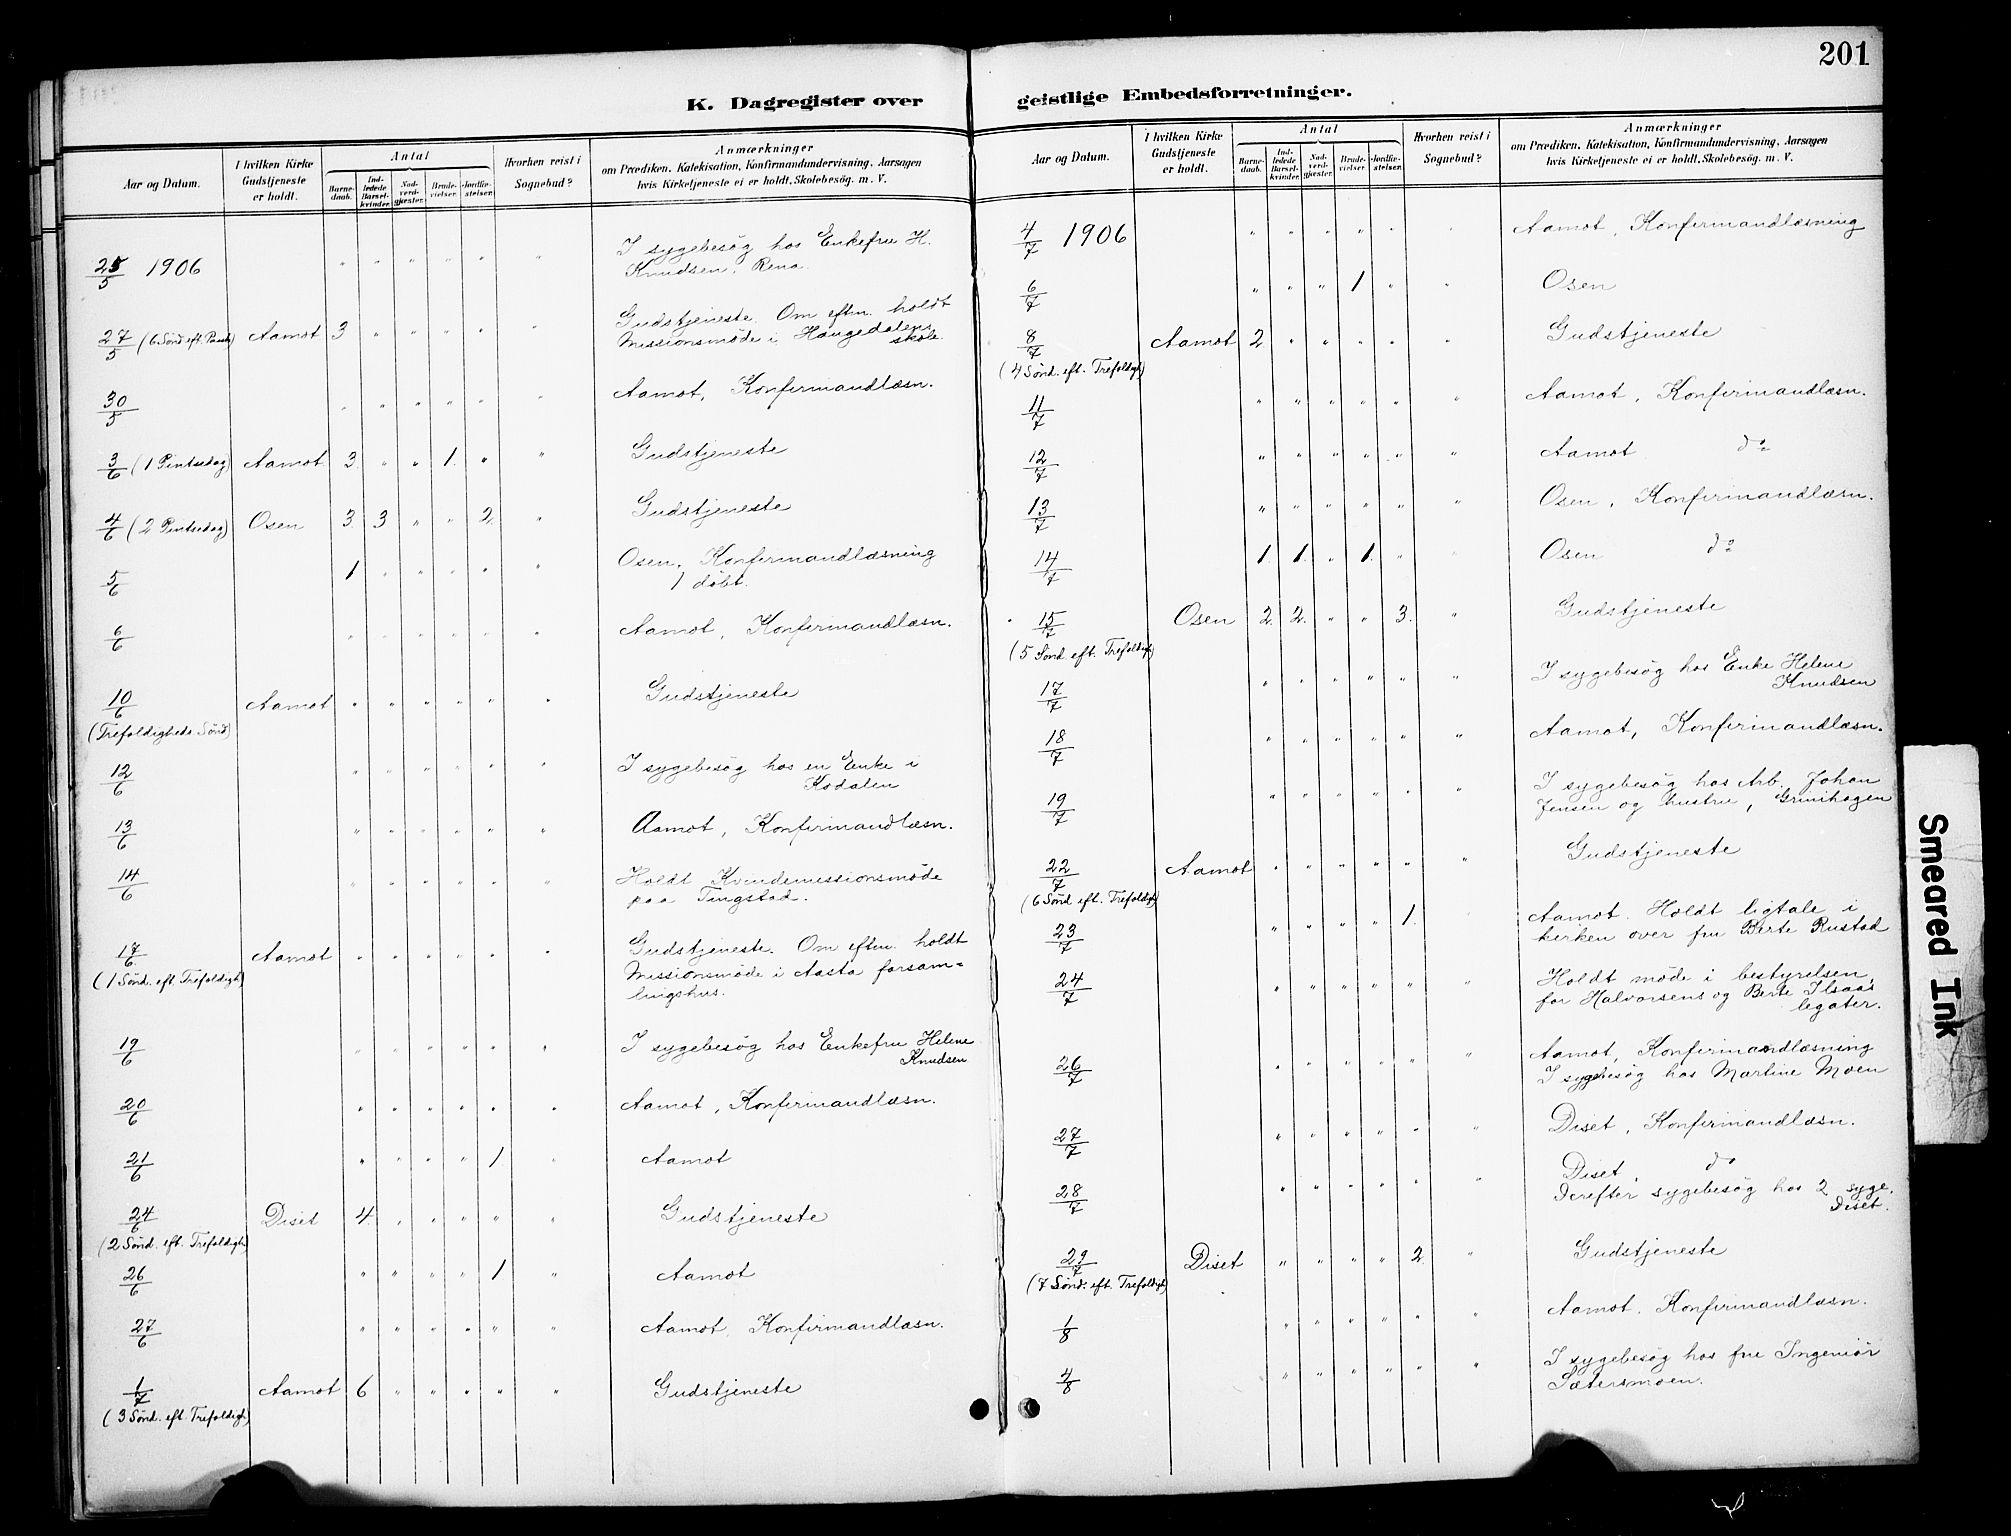 201
K. Dagregister over geistlige Embedsforretninger.
Aar og Datum. I hvilken Kirke Gudstjeneste er holdt. Antal Barnedaab. Indledede Barselkvinder. Nadverdgjæster. Brudevielser. Jordfæstelser. Hvorhen reist i Sognebud? Anmærkninger om Prædiken, Katekisation, Konfirmandundervisning, Aarsagen hvis Kirketjeneste ei er holdt, Skolebesøg. m. V.
25/5 1906 " " " " " " I sygebesøg hos Enkefru H.
Knudsen, Rena.
27/5 (6 Sønd eft. Paaske) Aamot 3 " " " " " Gudstjeneste. Om eftm. holdt
Missionsmøde i Haugedalens
skole.
30/5 " " " " " " Aamot, Konfirmandlæsn.
3/6 (1 Pintsedag) Aamot 3. " " 1. " " Gudstjeneste
4/6 (2 Pintsedag) Osen 3. 3 " " 2. " Gudstjeneste
5/6 1 " " " " " Osen. Konfirmandlæsning
1 døbt.
6/6 " " " " " " Aamot, Konfirmandlæsn.
10/6 Aamot " " " " " " Gudstjeneste
(Trefoldigheds Sønd)
12/6 " " " " " " I sygebesøg hos en Enke i
Kodalen
13/6 " " " " " " Aamot, Konfirmandlæsn.
14/6 " " " " " " Holdt Kvindemissionsmøde
paa Tingstad.
17/6 Aamot " " " " " " Gudstjeneste. Om eftm. holdt
(1 Sønd. eft. Trefoldigh) Missionsmøde i Aasta forsam=
lingshus.
19/6 " " " " " " I sygebesøg hos Enkefru Helene
Knudsen
20/6 " " " " " " Aamot, Konfirmandlæsn.
21/6 " " " " 1 " Aamot
24/6 Diset 4. " " " " " Gudstjeneste
(2 Sønd. eft. Trefoldigh)
26/6 " " " " 1 " Aamot
27/6 " " " " " " Aamot, Konfirmandlæsn.
1/7 Aamot 6 " " " " " Gudstjeneste
(3 Sønd. eft. Trefoldigh)
Aar og Datum. I hvilken Kirke Gudstjeneste er holdt. Antal Barnedaab. Indledede Barselkvinder. Nadverdgjæster. Brudevielser. Jordfæstelser. Hvorhen reist i Sognebud? Anmærkninger om Prædiken, Katekisation, Konfirmandundervisning, Aarsagen hvis Kirketjeneste ei er holdt, Skolebesøg. m. V.
4/7 1906 " " " " " " Aamot, Konfirmandlæsning
6/7 " " " 1 " " Osen
8/7 Aamot 2. " " " " " Gudstjeneste
(4 Sønd. eft. Trefoldigh)
11/7 " " " " " " Aamot, Konfirmandlæsn.
12/7 " " " " " " Aamot do
13/7 " " " " " " Osen, Konfirmandlæsn.
14/7 1. 1. " 1. " " Osen do
15/7 Osen 2. 2. " " 3. " Gudstjeneste
(5 Sønd. eft. Trefoldigh)
17/7 " " " " " " I sygebesøg hos Enke Helene
Knudsen
18/7 " " " " " " Aamot, Konfirmandlæsn.
19/7 " " " " " " I sygebesøg hos Arb. Johan
Jensen og hustru, Grinihagen
22/7 Aamot " " " " " " Gudstjeneste
(6 Sønd. eft. Trefoldigh)
23/7 " " " " 1. " Aamot. Holdt ligtale i
kirken over fru Berte Rustad
24/7 " " " " " " Holdt møde i bestyrelsen
for Halvorsens og Berte Ilsaas
legater.
26/7 " " " " " " Aamot, Konfirmandlæsning
I sygebesøg hos Martine Moen
27/7 " " " " " " Diset, Konfirmandlæsn.
28/7 " " " " " " Diset, do
Derefter sygebesøg hos 2 syge,
Diset.
29/7 Diset " " " " 2. " Gudstjeneste
(7 Sønd. eft. Trefoldigh)
1/8 " " " " " " Aamot. Konfirmandlæsn.
4/8 " " " " " " I sygebesøg hos fru Ingeniør
Sætersmoen.
Smeared Ink